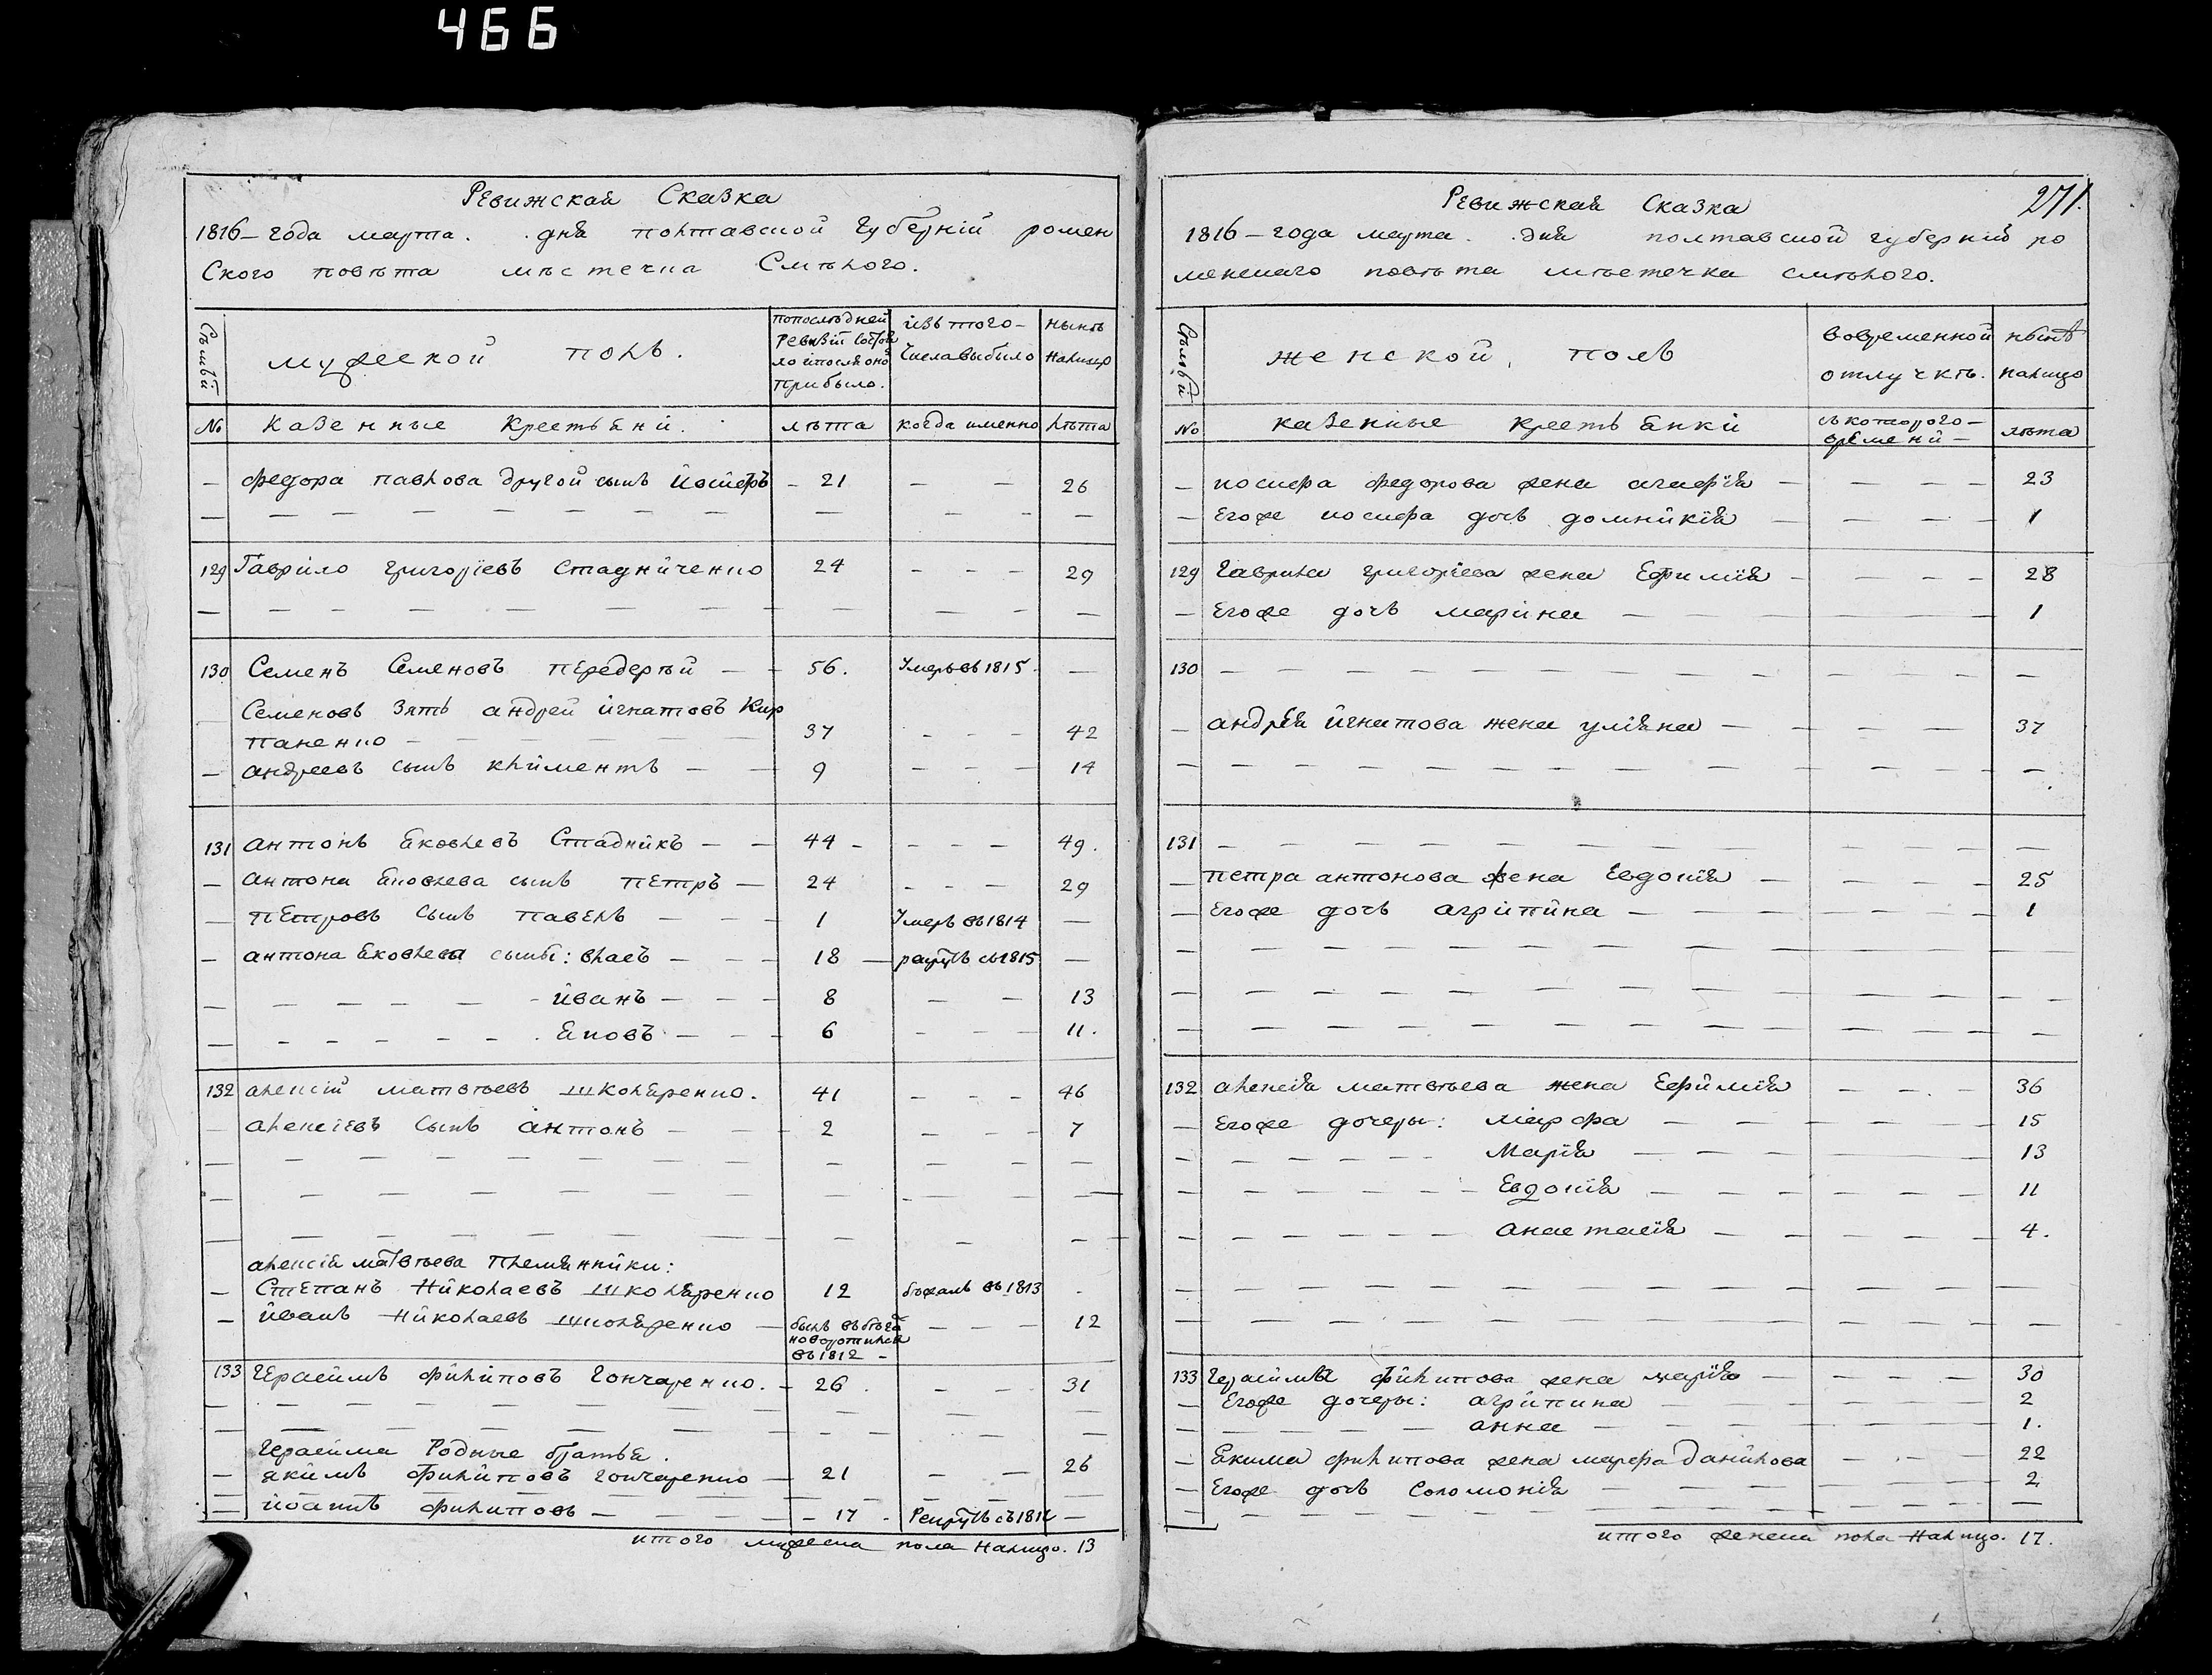 466
Ревижская Сказка
1816 – года марта . . дня полтавской губернїй ромен
Ского повѣта мѣстечка Смѣлого.
Семьи
мужеской полъ.
попослѣдней ревизїй состояло ипослѣоной прибыло.
изъ того числа выбыло
нынѣ налицо
№ казенные крестьяни. лѣта когда именно лѣта
– федора павлова другой сынъ йосифъ – 21 – – 26
129 Гаврило григорїевъ стадниченко 24 – – – 29
130 Семенъ Семеновъ передерѣй – – 56. Умеръ въ 1815. –
Семеновъ зять андрей игнатовъ Кир
паненко – 37 – – – 42
– андреевъ сынъ климентъ – – 9 – – – 14
131 антонъ яковлевъ Стадникъ – – 44 – – – – 49.
– антона яковлева сынъ петръ – 24 – – – 29
– петровъ сынъ павелъ – – – 1 Умеръ въ 1814 –
– антона яковлева сыны: власъ – – – 18 – рекрутъ съ 1815 –
– – – – – – йванъ – – – 8 – – 13
– – – – – – – яковъ – – – 6 – – – 11.
132 алексїй матвѣевъ Школяренко. 41 – – – 46
– алексїевъ сынъ антонъ – – – 2 – – – 7
алексїя матвѣева племянники:
– Степанъ Николаевъ Школяренко 12 бѣжалъ въ 1813
– йванъ Николаевъ школяренко – былъ въ бѣга новоротился въ 1812 – – – – 12
133 Герасимъ филиповъ гончаренко. – 26 – – 31
Герасима Родные братья.
– якимъ филиповъ гончаренко – 21 – – 26
– йванъ филиповъ – – – – 17 – Рекрутъ съ 1811 –
итого мужеска пола налицо. 13
Ревижская Сказка
271.
1816 – года марта . . дня полтавской губернїй ро
менскаго повѣта мѣстечка смѣлого.
Семьи
женской полъ
вовременной отлучкѣ.
нынѣ налицо
№ казенные крестьянки съ которого времени – лѣта
– иосифа федорова жена агафїя – – – – – 23
– егоже иосифа дочь домникїя – – – – 1
129 гаврила григорїева жена Ефимїя – – – – – 28
– егоже дочь марина – – – – – 1
130
– андрея игнатова жена улїяна – – – – 37
131
– петра антонова жена Евдокїя – – – – – 25
– егоже дочь агрипина – – – – – – 1
132 алексїя матвѣева жена Ефимїя – – – 36
– егоже дочеры: марфа – – – – – – 15
– – – – – – марїя – – – – – 13
– – – – – – – Евдокїя – – – – – – 11
– – – – – – – анастасїя – – – – – 4.
133 герасима филипова жена марїя – – – – – 30
– егоже дочеры: агрипина – – – – – 2
– – – – – анна – – – – – 1.
– якима филипова жена марфа данилова – – – – 22
– егоже дочь соломонїя – – – – – 2
итого женска пола налицо. 17.